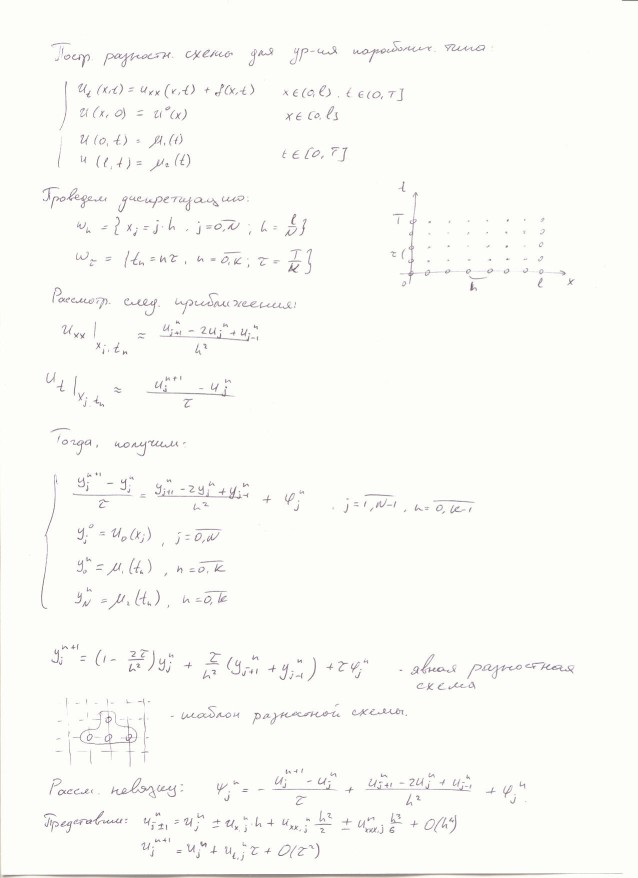 Постр. разностн. схемы для ур-ия параболич. типа:
u_t(x,t) = u_xx(x,t) + f(x,t)   x∈(0,l), t∈(0,T]
u(x,0) = u⁰(x)   x∈[0,l]
u(0,t) = μ₁(t)
u(l,t) = μ₂(t)   t∈[0,T]
Проведем дискретизацию:
ω_h = {x_j = j·h, j=\overline{0,N}; h = l/N}
ω_τ = {t_n = nτ, n=\overline{0,K}; τ = T/K}
t
T
τ
0 h l x
Рассмотр. след. приближения:
u_xx|_{x_j,t_n} ≈ (u_{j+1}^n - 2u_j^n + u_{j-1}^n)/h²
u_t|_{x_j,t_n} ≈ (u_j^{n+1} - u_j^n)/τ
Тогда, получим:
(y_j^{n+1} - y_j^n)/τ = (y_{j+1}^n - 2y_j^n + y_{j-1}^n)/h² + φ_j^n, j=\overline{1,N-1}, n=\overline{0,K-1}
y_j^0 = u_0(x_j), j=\overline{0,N}
y_0^n = μ₁(t_n), n=\overline{0,K}
y_N^n = μ₂(t_n), n=\overline{0,K}
y_j^{n+1} = (1 - 2τ/h²)y_j^n + τ/h²(y_{j+1}^n + y_{j-1}^n) + τφ_j^n - явная разностная
схема
- шаблон разностной схемы.
Рассм. невязку: ψ_j^n = -(u_j^{n+1} - u_j^n)/τ + (u_{j+1}^n - 2u_j^n + u_{j-1}^n)/h² + φ_j^n
Представим: u_{j±1}^n = u_j^n ± u_{x,j}^n·h + u_{xx,j}^n h²/2 ± u_{xxx,j}^n h³/6 + O(h⁴)
u_j^{n+1} = u_j^n + u_{t,j}^n τ + O(τ²)